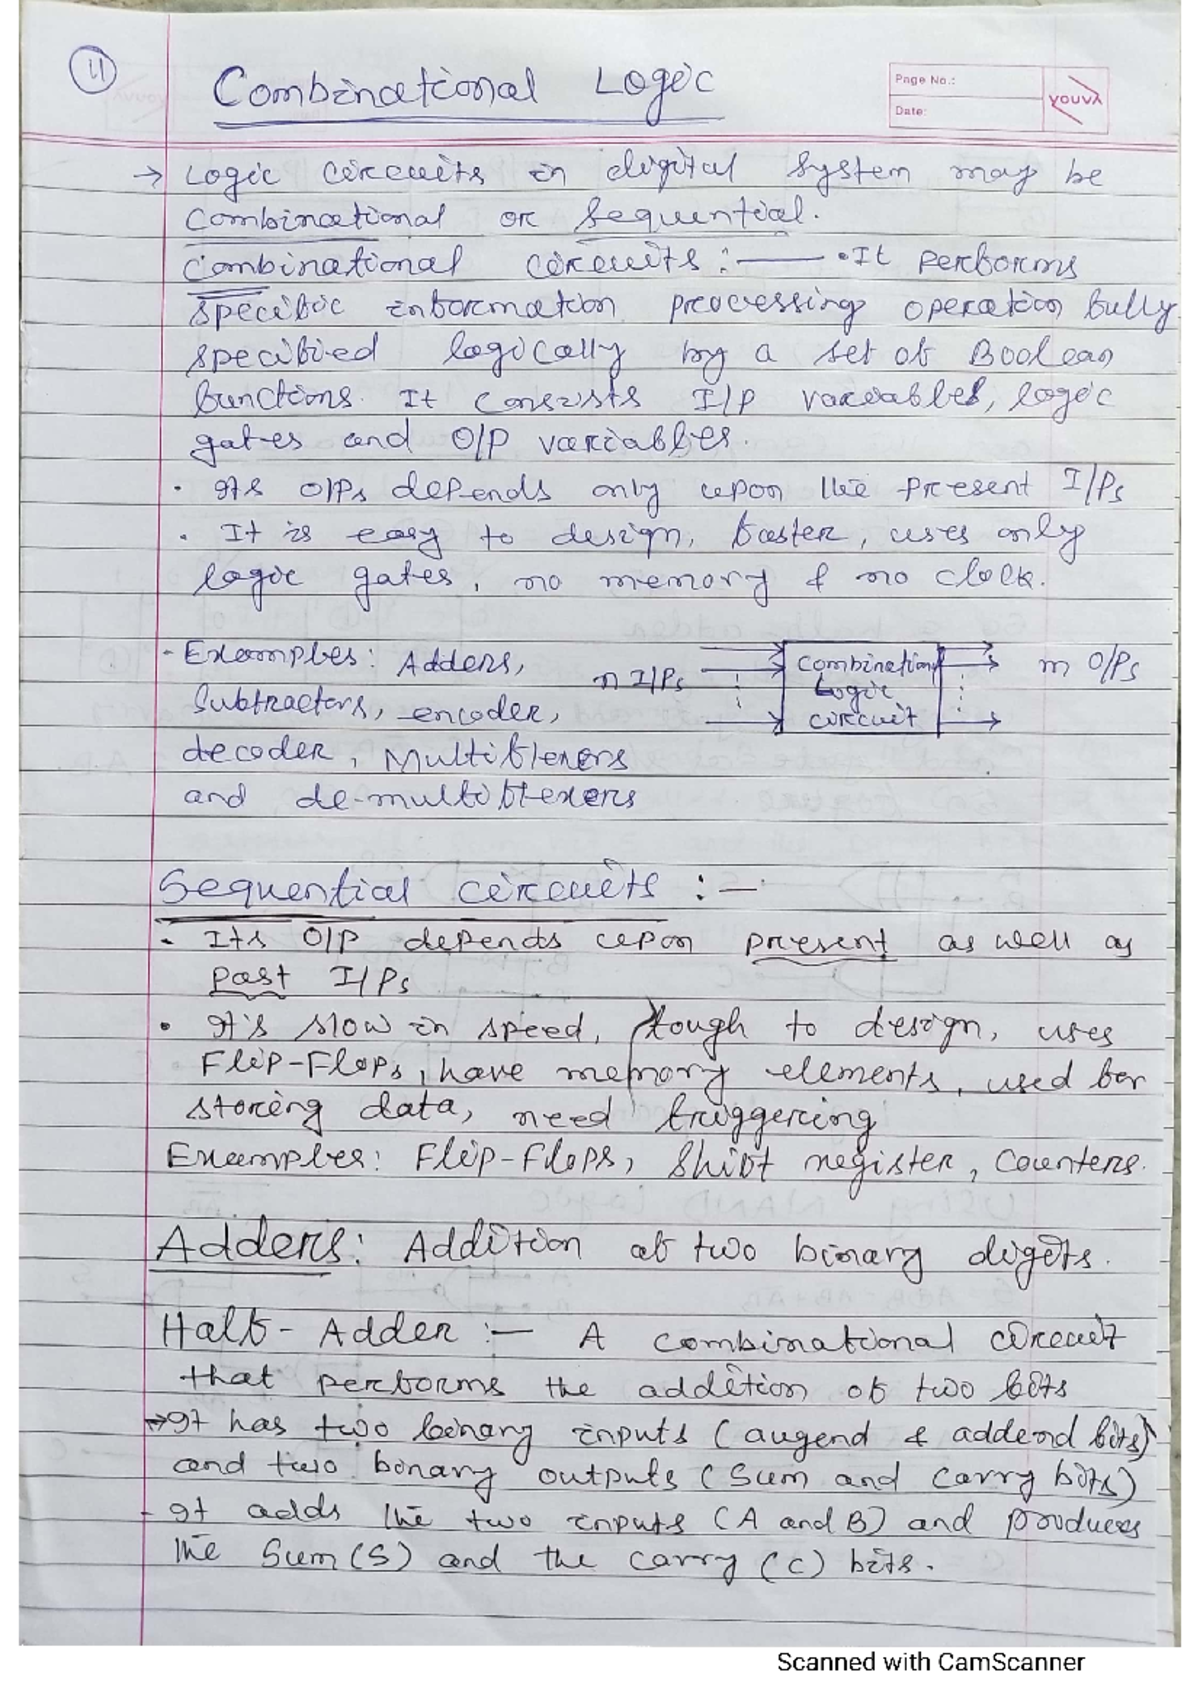 11
Combinational Logic
Page No.:
Date:
YOUVA
→ Logic circuits in digital system may be
combinational or sequential.
Combinational circuits : — • It performs
specific information processing operation fully
specified logically by a set of Boolean
functions. It consists I/P variables, logic
gates and O/P variables.
• Its O/Ps depends only upon the present I/Ps
• It is easy to design, faster, uses only
logic gates, no memory & no clock.
- Examples: Adders,
Subtractors, encoder,
decoder, Multiplexers
and de-multiplexers
n I/Ps
combination
Logic
circuit
m O/Ps
Sequential circuits : —
• Its O/P depends upon present as well as
past I/Ps
• It's slow in speed, tough to design, uses
Flip-Flops, have memory elements, used for
storing data, need triggering
Examples: Flip-Flops, Shift register, Counters.
Adders: Addition of two binary digits.
Half-Adder :— A combinational circuit
that performs the addition of two bits
→ It has two binary inputs (augend & addend bits)
and two binary outputs (Sum and carry bits)
- It adds the two inputs (A and B) and produces
the Sum (S) and the carry (C) bits.
Scanned with CamScanner